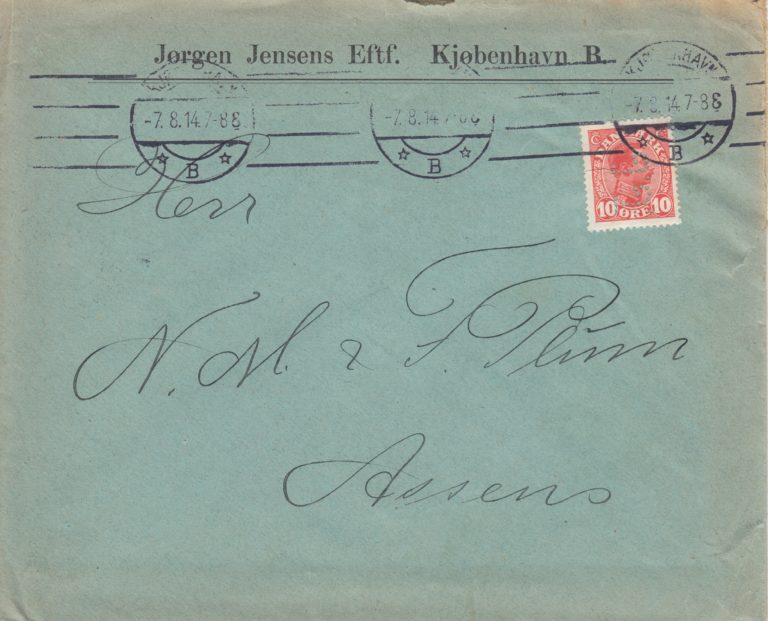 Jørgen Jensens Eftf. Kjøbenhavn B.
KJØBENHAVN
-7.8.14.7-8E
B
-7.8.14.7-8E
B
-7.8.14.7-8E
B
DANMARK
10 ØRE 10
Herr
N. M. & F. Plum
Assens